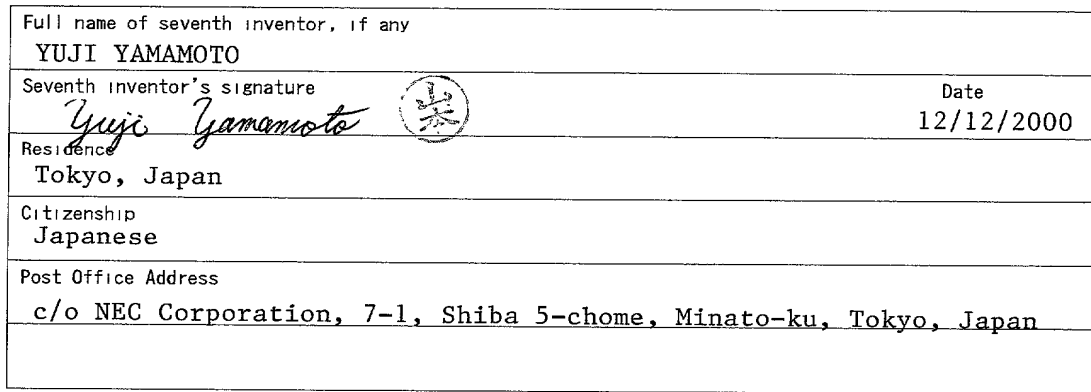 Full name of seventh inventor, if any
YUJI YAMAMOTO
Seventh inventor's signature
Yuji Yamamoto 山本
Date
12/12/2000
Residence
Tokyo, Japan
Citizenship
Japanese
Post Office Address
c/o NEC Corporation, 7-1, Shiba 5-chome, Minato-ku, Tokyo, Japan